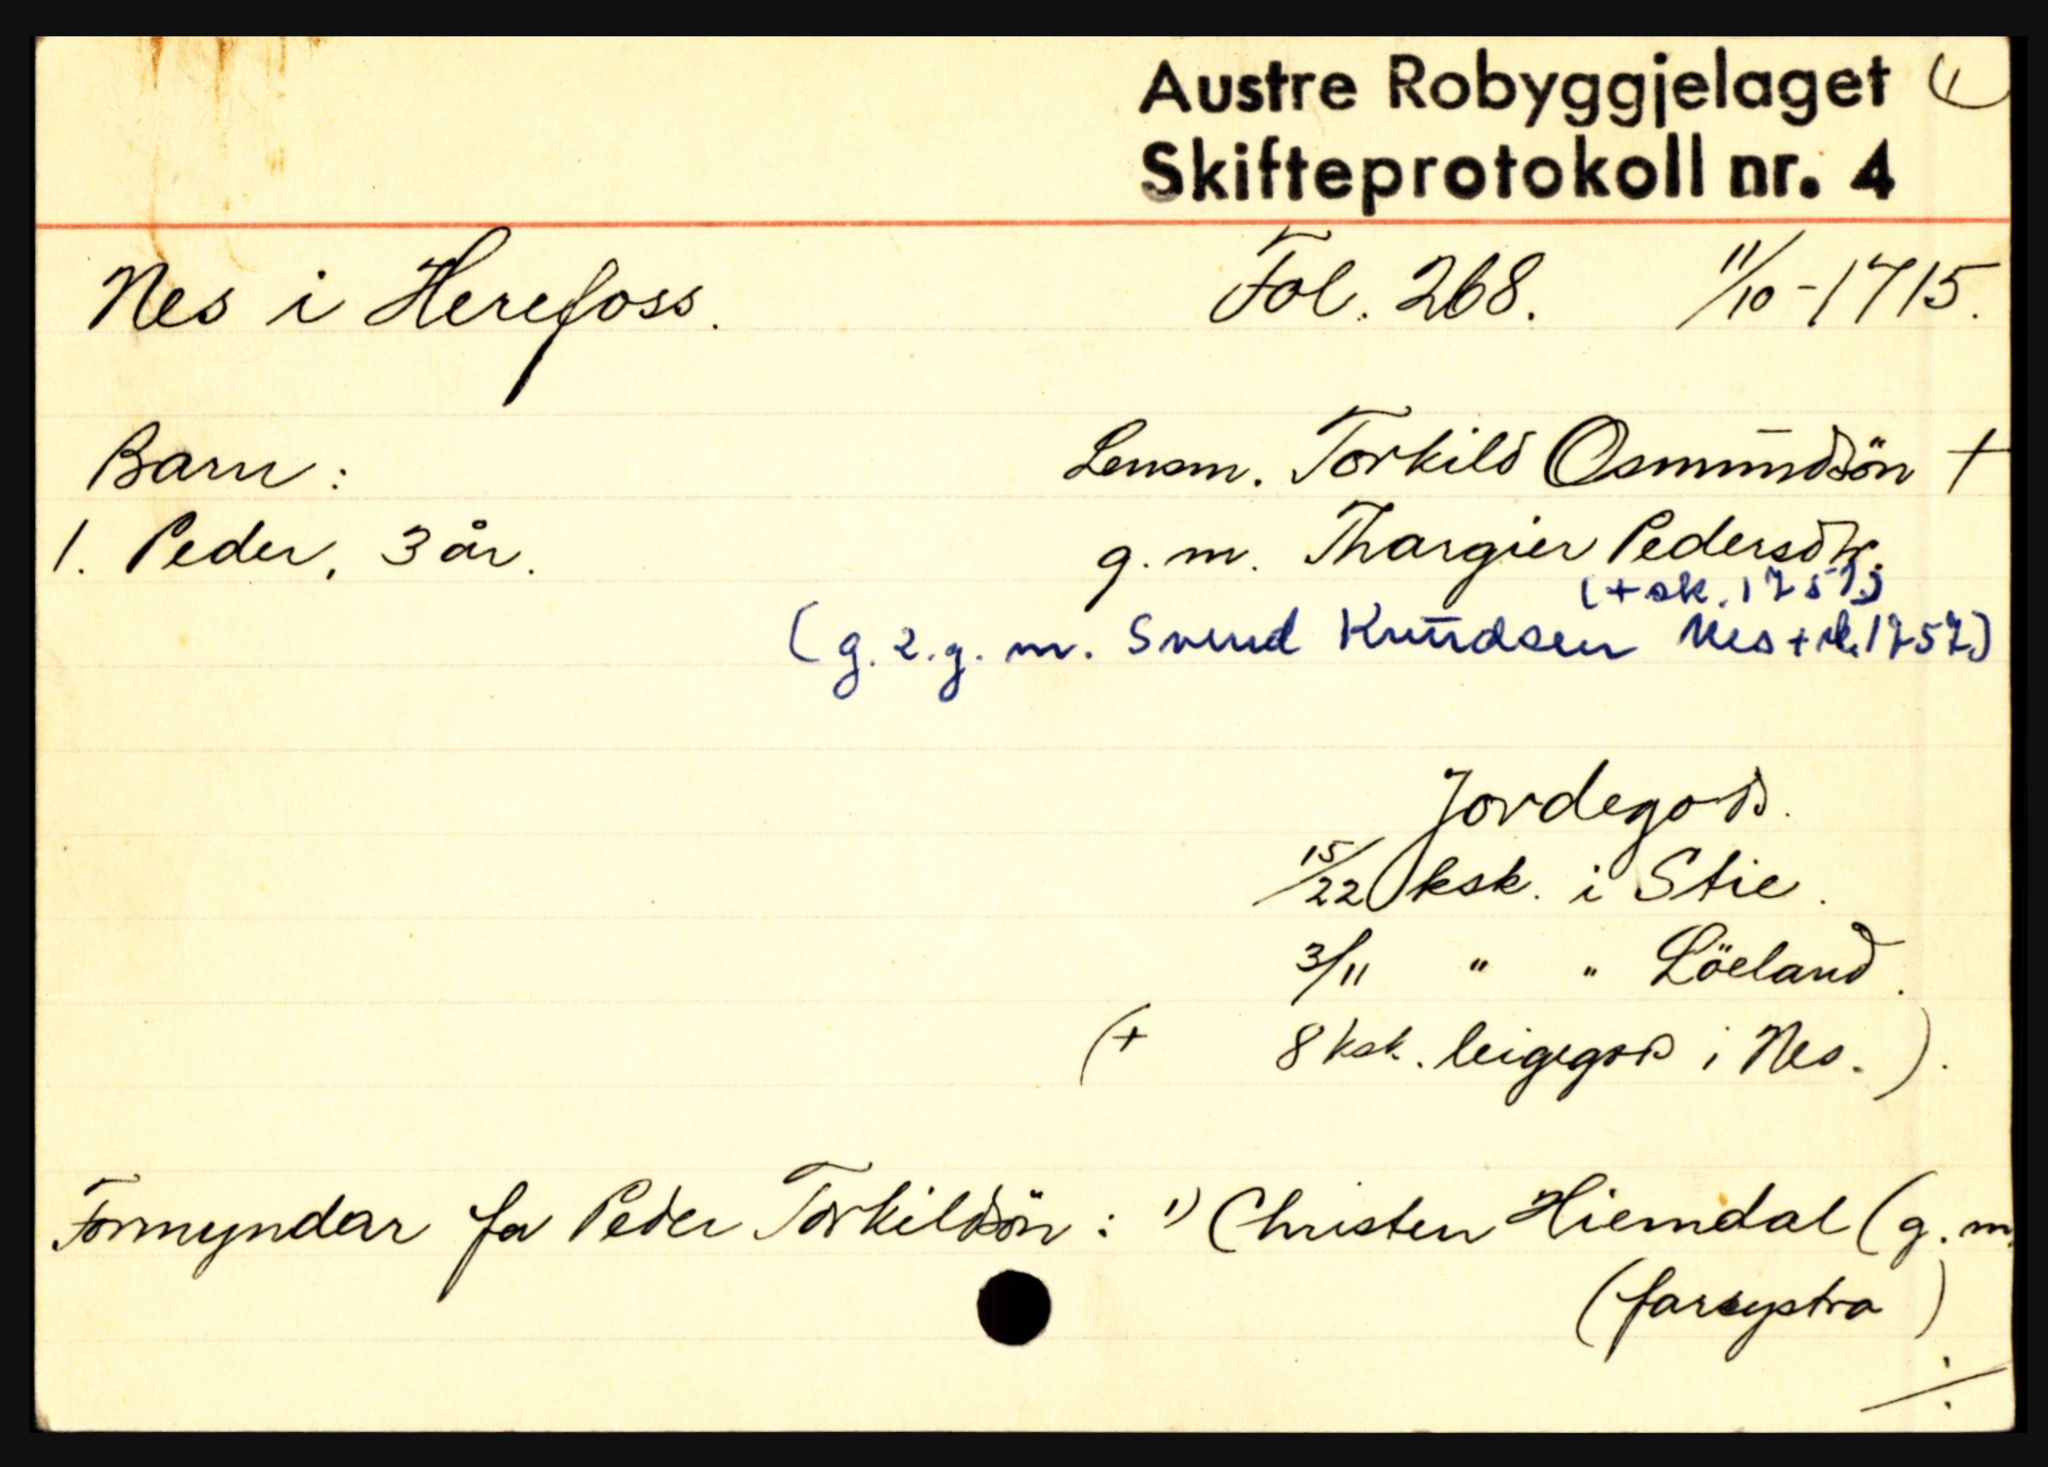 Austre Robyggjelaget
Skifteprotokoll nr. 4
Nes i Herefoss. Fol. 268. 11/10-1715.
Barn: Lensm. Torkild Osmundsön +
1. Peder, 3 år. g.m. Thargier Pedersdtr.
(+ sk. 1757)
(g. 2. g. m. Svend Knudsen Nes + sk. 1757)
Jordegods.
15/22 ksk. i Stie.
3/11 " " Löeland.
(+ 8 ksk. leigegods i Nes.).
Formyndar for Peder Torkildsön: 1) Christen Hiemdal (g.m.
(farsystra)
./.